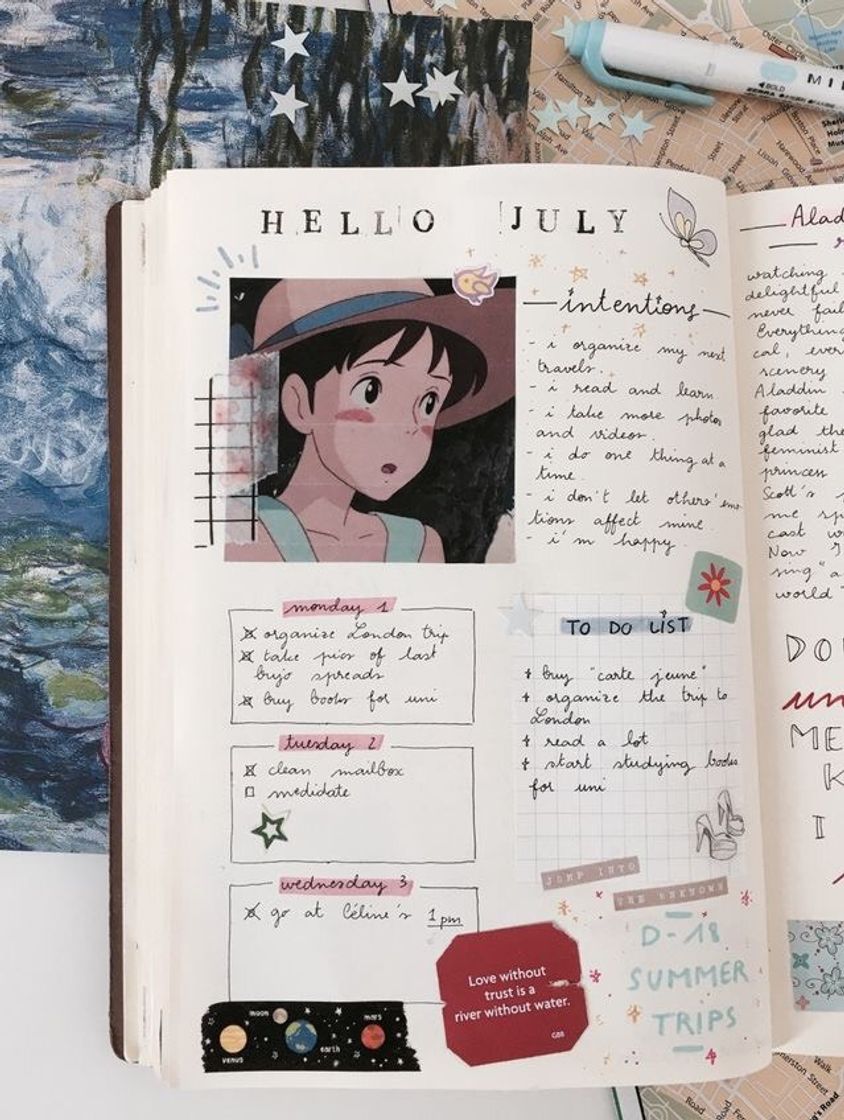 HELLO JULY
intentions
- i organize my next
travels.
- i read and learn
- i take more photos
and videos.
- i do one thing at a
time.
- i don't let others' emo
tions affect mine.
- i'm happy.
monday 1
organize London trip
take pics of last
bujo spreads
buy books for uni
tuesday 2
clean mailbox
medidate
wednesday 3
go at Céline's 1pm
TO DO LIST
+ buy "carte jeune"
+ organize the trip to
London
+ read a lot
+ start studying books
for uni
JUMP INTO
THE UNKNOWN
D-18
SUMMER
TRIPS
Love without
trust is a
river without water.
GBB
moon
mars
venus
earth
watching
delightful
never
Everything
scenery
Aladdin
favorite
glad
feminist
princess
Scott's
me
cast
Now
world
ME
I
BOLD
Hamilton
Park
Lisson
Walk